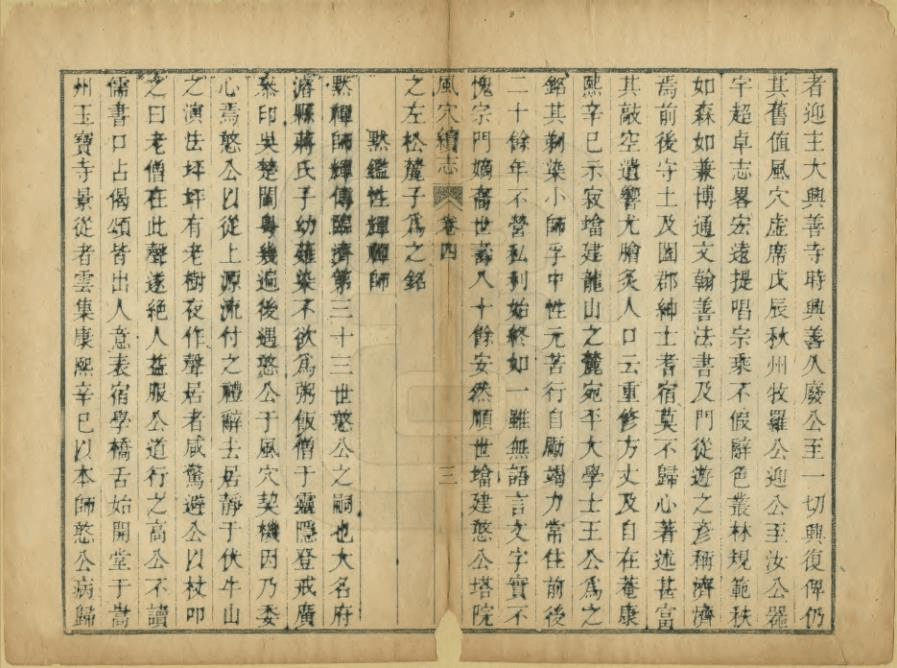 者迎主大興善寺時興善久廢公至一切興復俾仍
其舊值風穴虛席戊辰秋州牧羅公迎公至汝公器
宇超卓志畧宏遠提唱宗乘不假辭色叢林規範秩
如森如兼博通文翰善法書及門從遊之彥稱濟濟
焉前後守土及闔郡紳士耆宿莫不歸心著述甚富
其敲空遺響尤膾炙人口云重修方丈及自在菴康
熙辛巳示寂墖建龍山之麓宛平大學士王公爲之
銘其剃染小師孚中性元苦行自勵竭力常住前後
二十餘年不營私利始終如一雖無語言文字實不
愧宗門嫡裔世壽八十餘安然順世墖建憨公塔院
風穴續志 卷四 三
之左松麓子爲之銘
默鑑性輝禪師
默禪師輝傳臨濟第三十三世憨公之嗣也大名府
濬縣蔣氏子幼薙染不欲爲粥飯僧于靈隱登戒廣
叅印吳楚閩粵幾遍後遇憨公于風穴契機因乃委
心焉憨公以從上源流付之禮辭去居靜于伏牛山
之演法坪坪有老樹夜作聲居者咸驚避公以杖叩
之曰老僧在此聲遂絕人益服公道行之高公不讀
儒書口占偈頌皆出人意表宿學橋舌始開堂于嵩
州玉寶寺景從者雲集康熙辛巳以本師憨公病歸